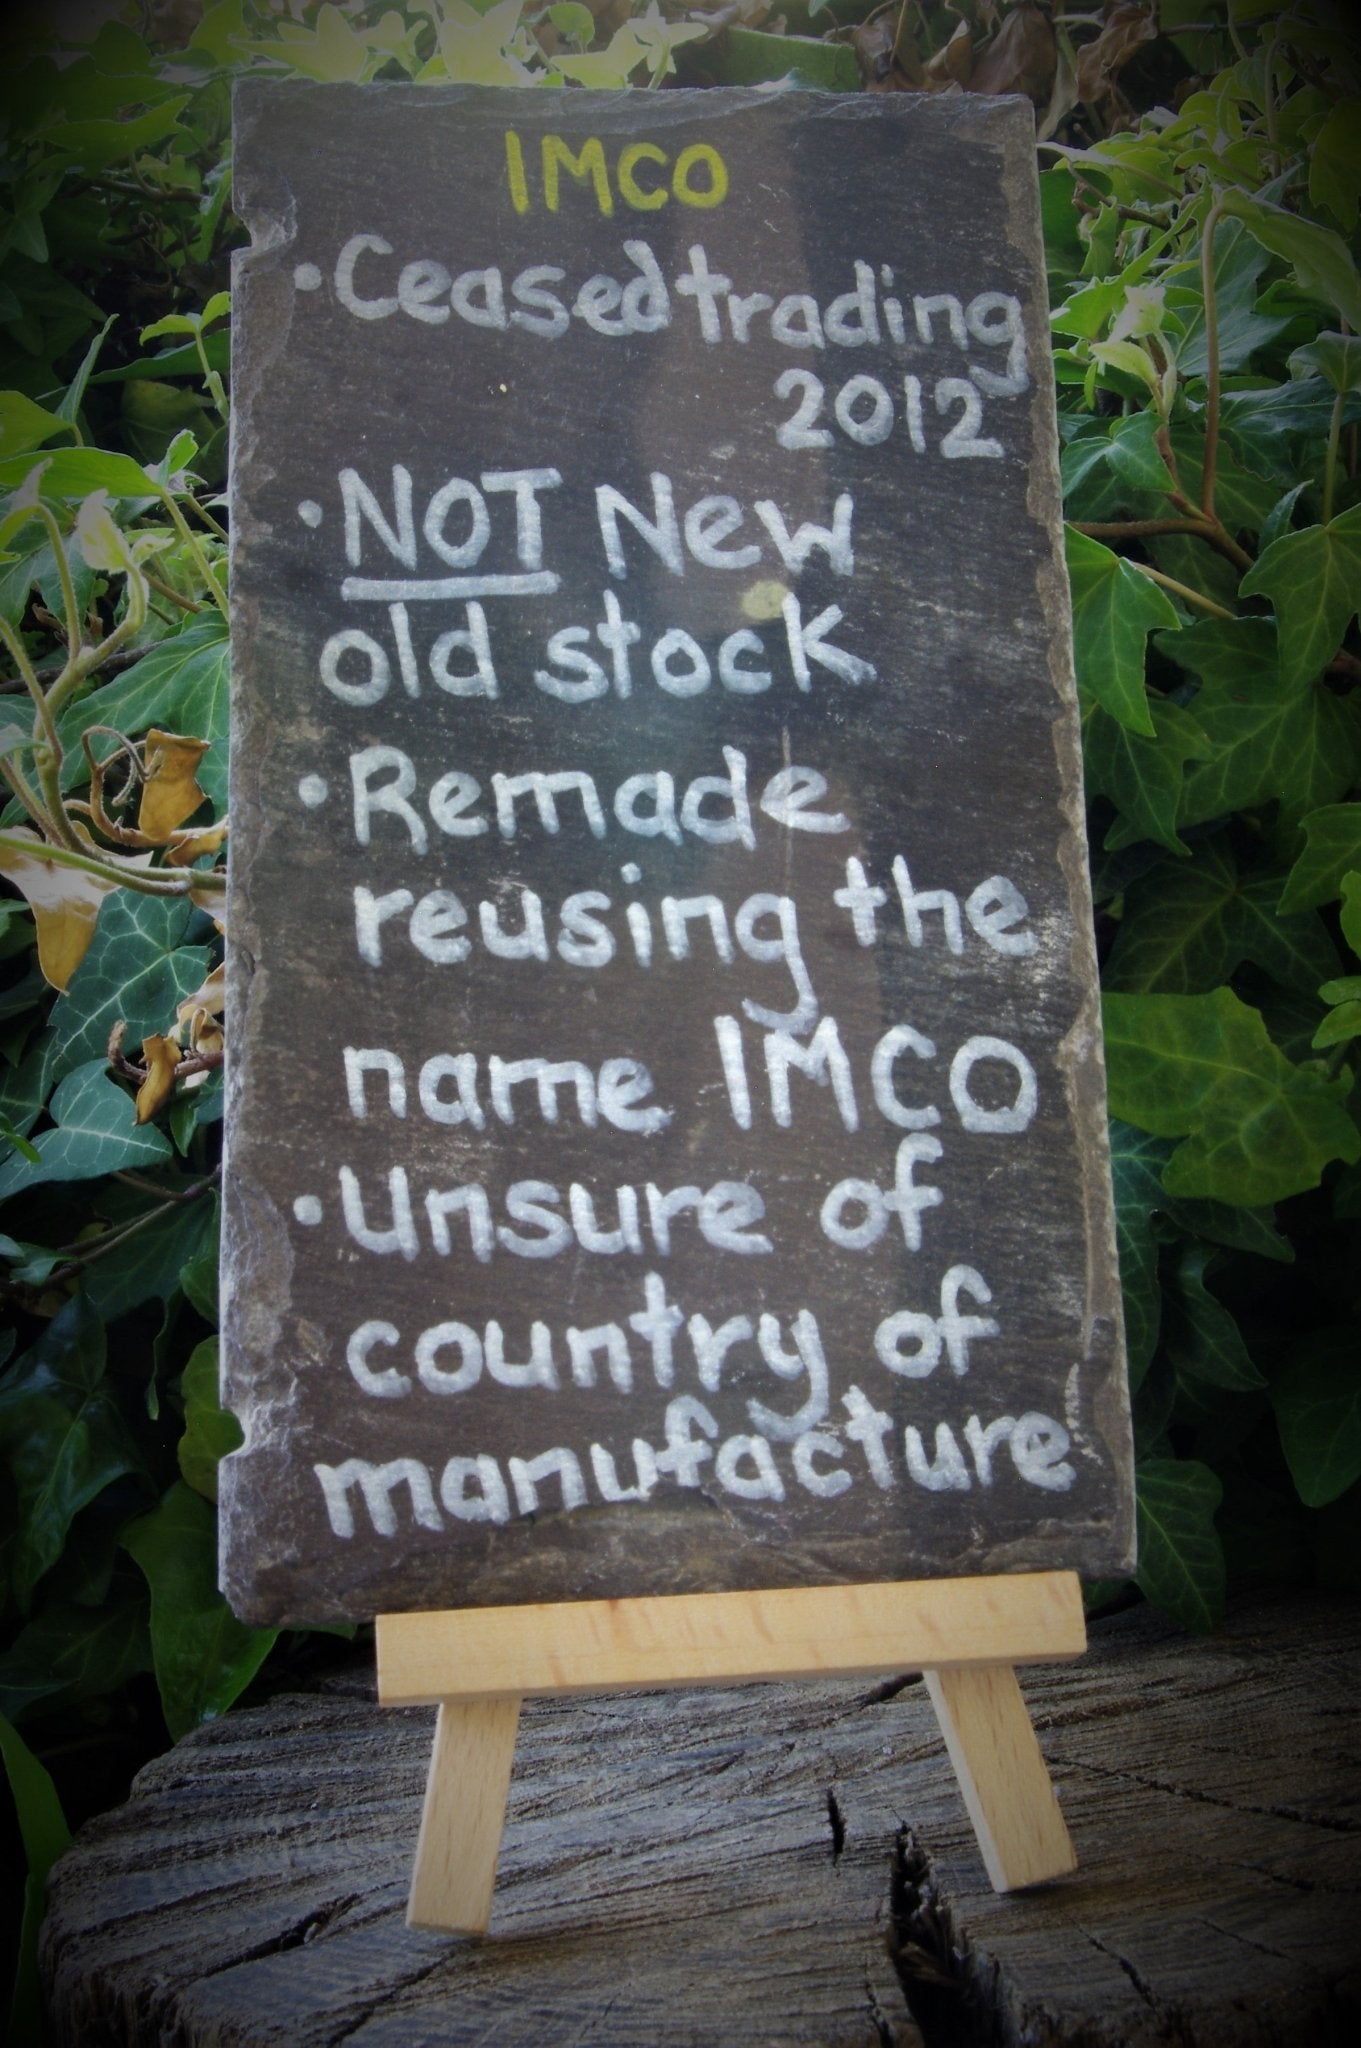 IMCO
• Ceased trading
2012
• NOT New
old stock
• Remade
reusing the
name IMCO
• Unsure of
country of
manufacture